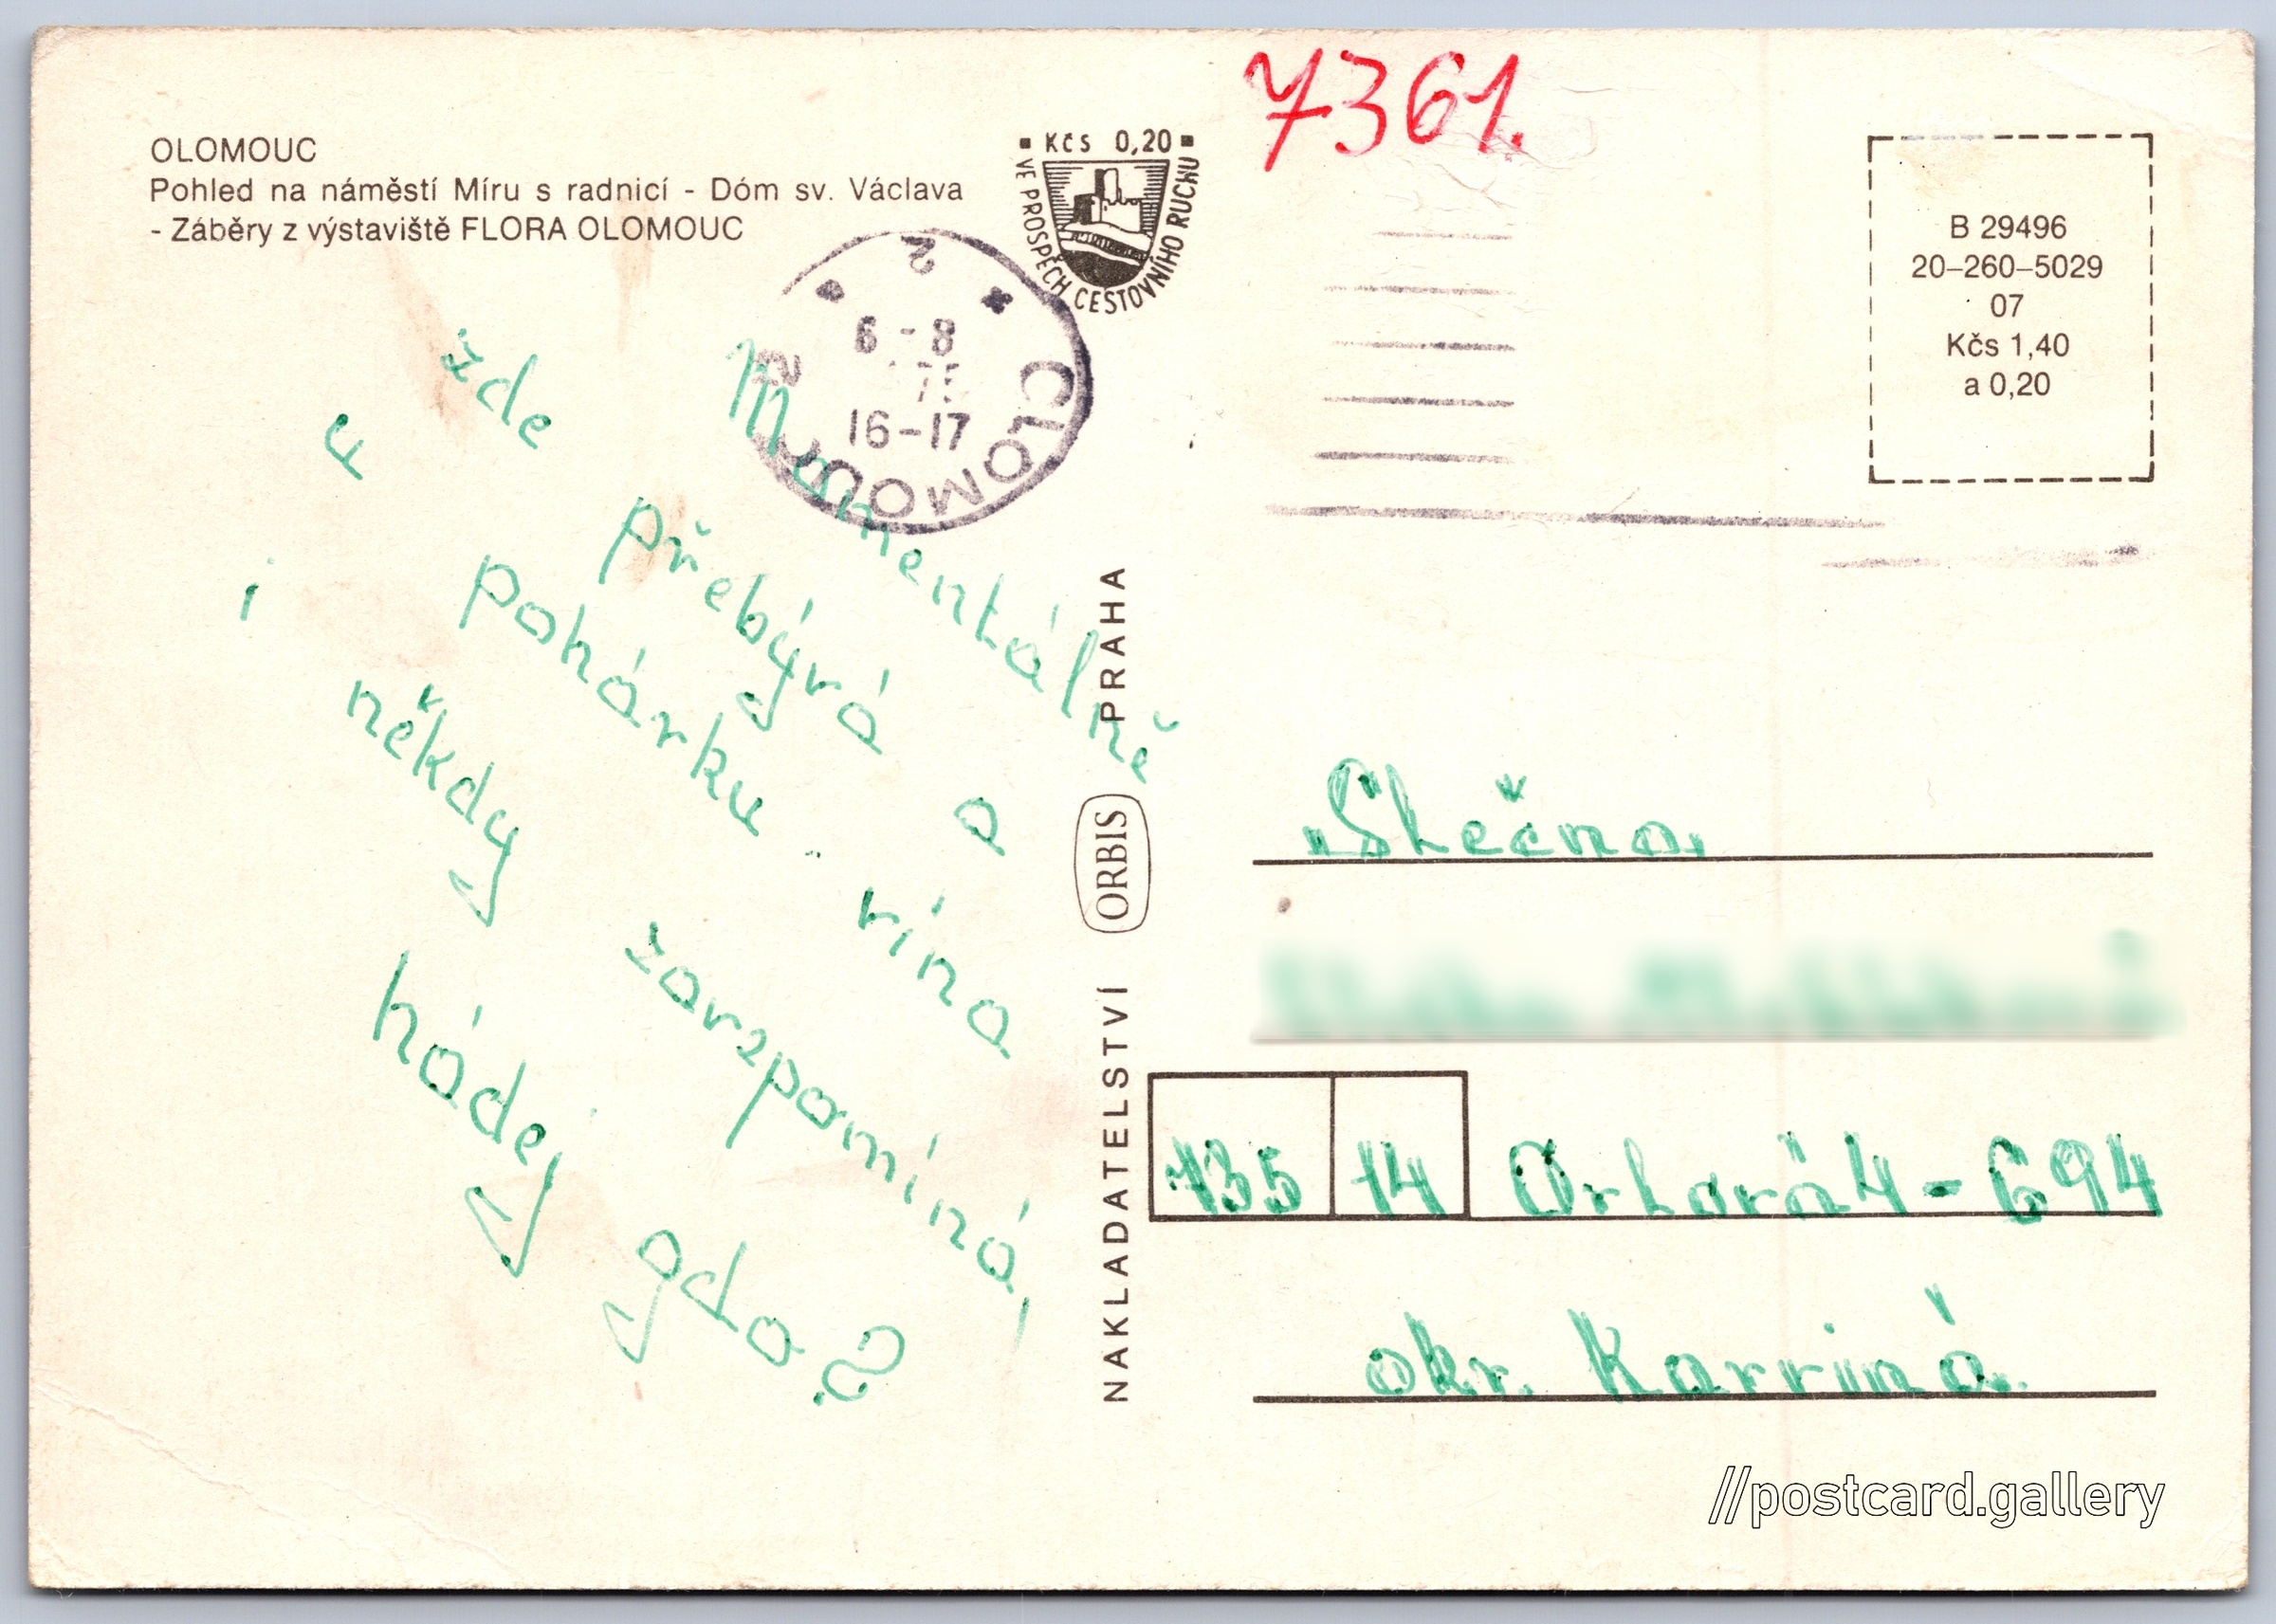 OLOMOUC
Pohled na náměstí Míru s radnicí - Dóm sv. Václava
- Záběry z výstaviště FLORA OLOMOUC
■ Kčs 0,20 ■
VE PROSPĚCH CESTOVNÍHO RUCHU
7361.
B 29496
20–260–5029
07
Kčs 1,40
a 0,20
OLOMOUC 2
6-8
75
16-17
Momentálně
zde přebývá a
u pohárku vína
i někdy zavzpomíná,
hádej gdo?
NAKLADATELSTVÍ ORBIS PRAHA
Slečna
735 14 Orlová 4 - 694
okr. Karviná
//postcard.gallery